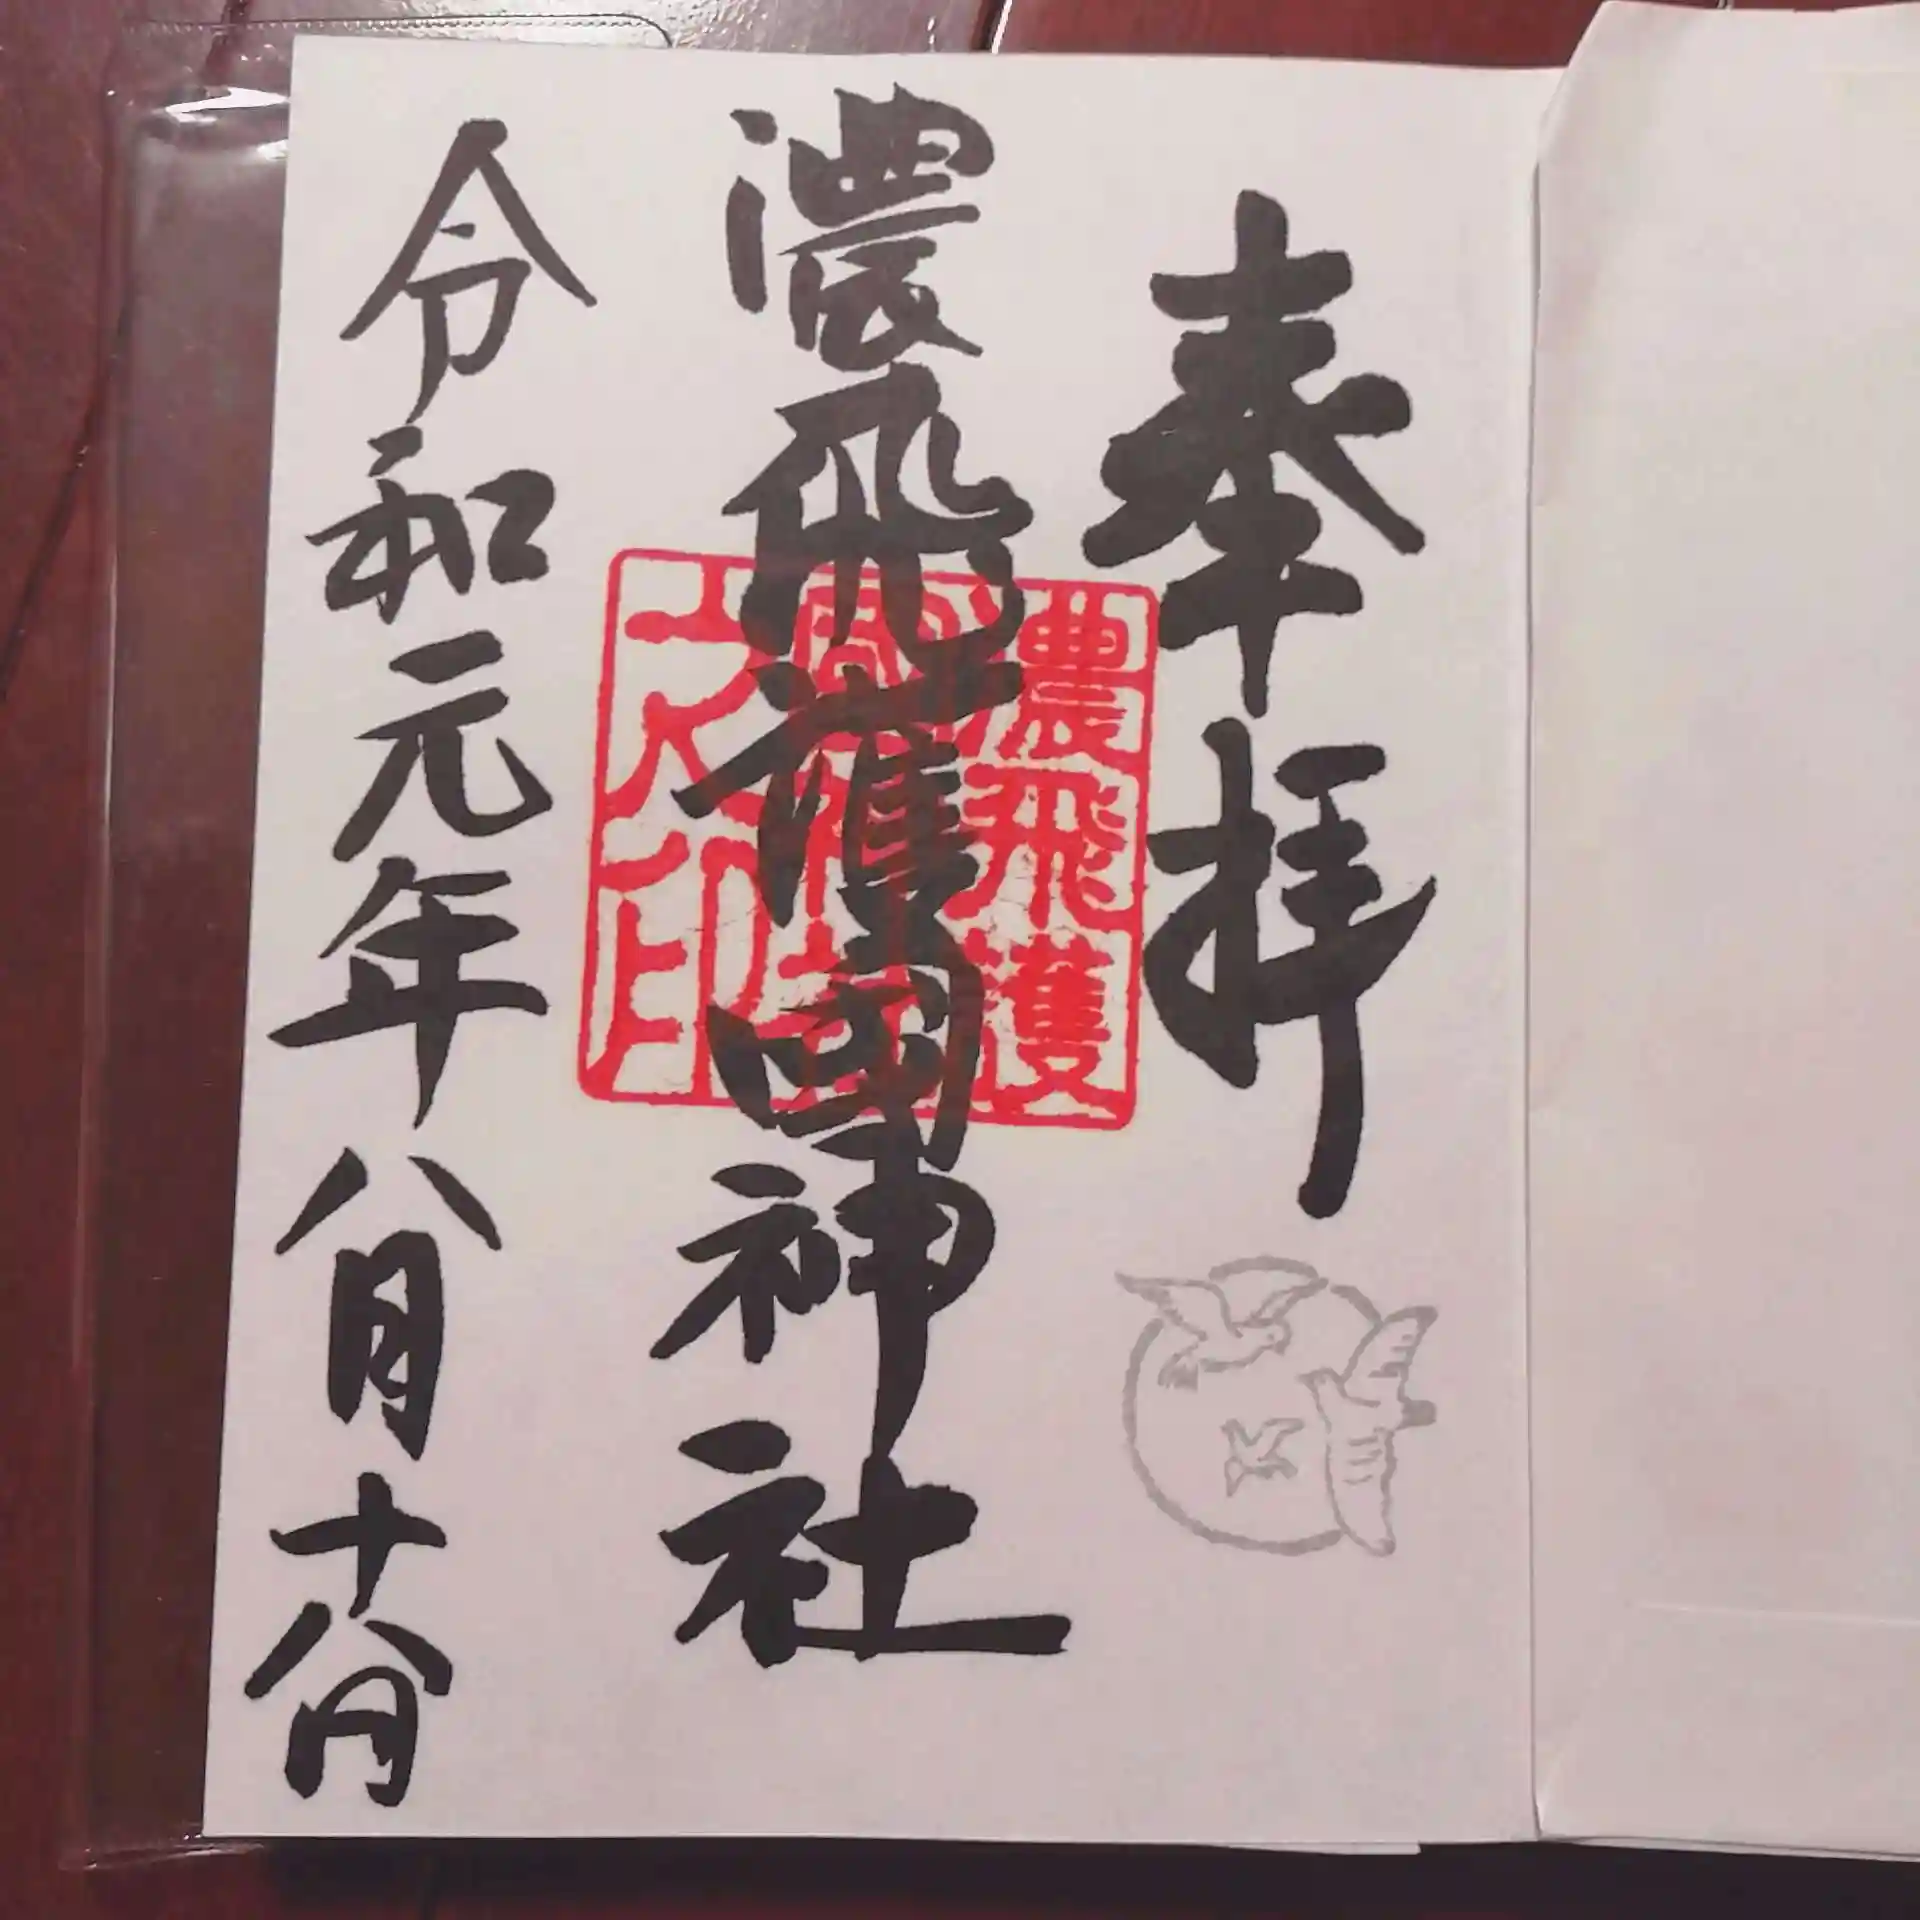 奉拝
濃飛護國神社
令和元年八月十八日
濃飛護
之印